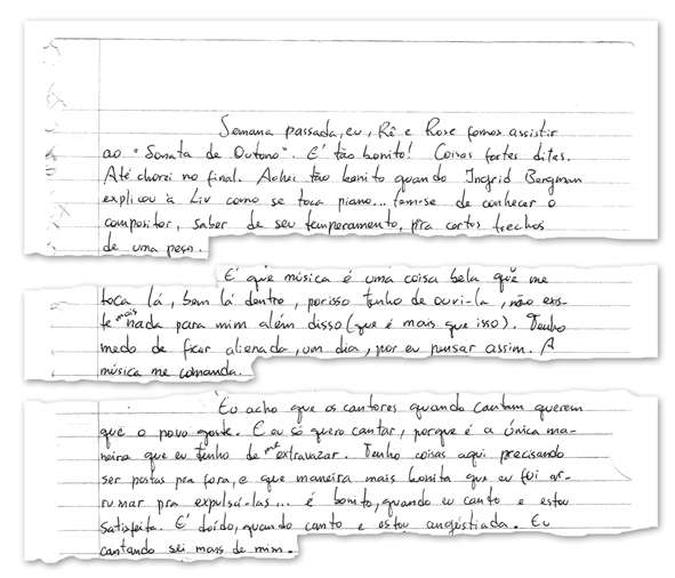 Semana passada, eu, Rê e Rose fomos assistir
ao "Sonata de Outono". É tão bonito! Coisas fortes ditas.
Até chorei no final. Achei tão bonito quando Ingrid Bergman
explicou à Liv como se toca piano... tem-se de conhecer o
compositor, saber de seu temperamento, pra certos trechos
de uma peça.
É que música é uma coisa bela que me
toca lá, bem lá dentro, porisso tenho de ouvi-la, não exis-
te mais nada para mim além disso (que é mais que isso). Tenho
medo de ficar alienada, um dia, por eu pensar assim. A
música me comanda.
Eu acho que os cantores quando cantam querem
que o povo goste. E eu só quero cantar, porque é a única ma-
neira que eu tenho de me extravazar. Tenho coisas aqui precisando
ser postas pra fora, e que maneira mais bonita que eu fui ar-
rumar pra expulsá-las... é bonito, quando eu canto e estou
satisfeita. É doído, quando canto e estou angustiada. Eu
cantando sei mais de mim.